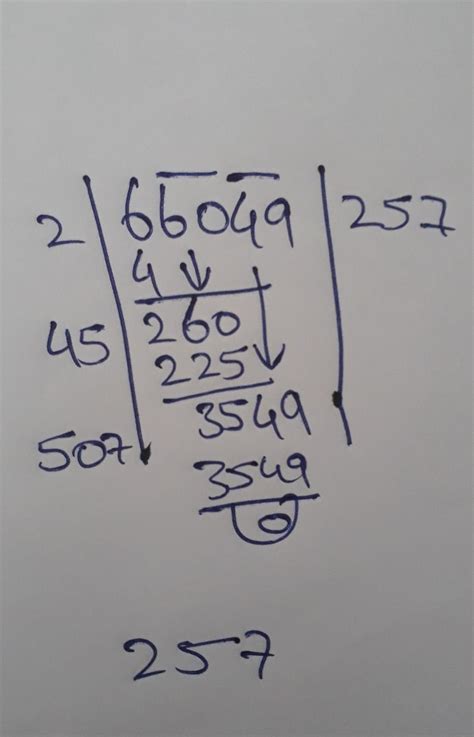 2 66049 257
4
45 260
225
507 3549
3549
0
257